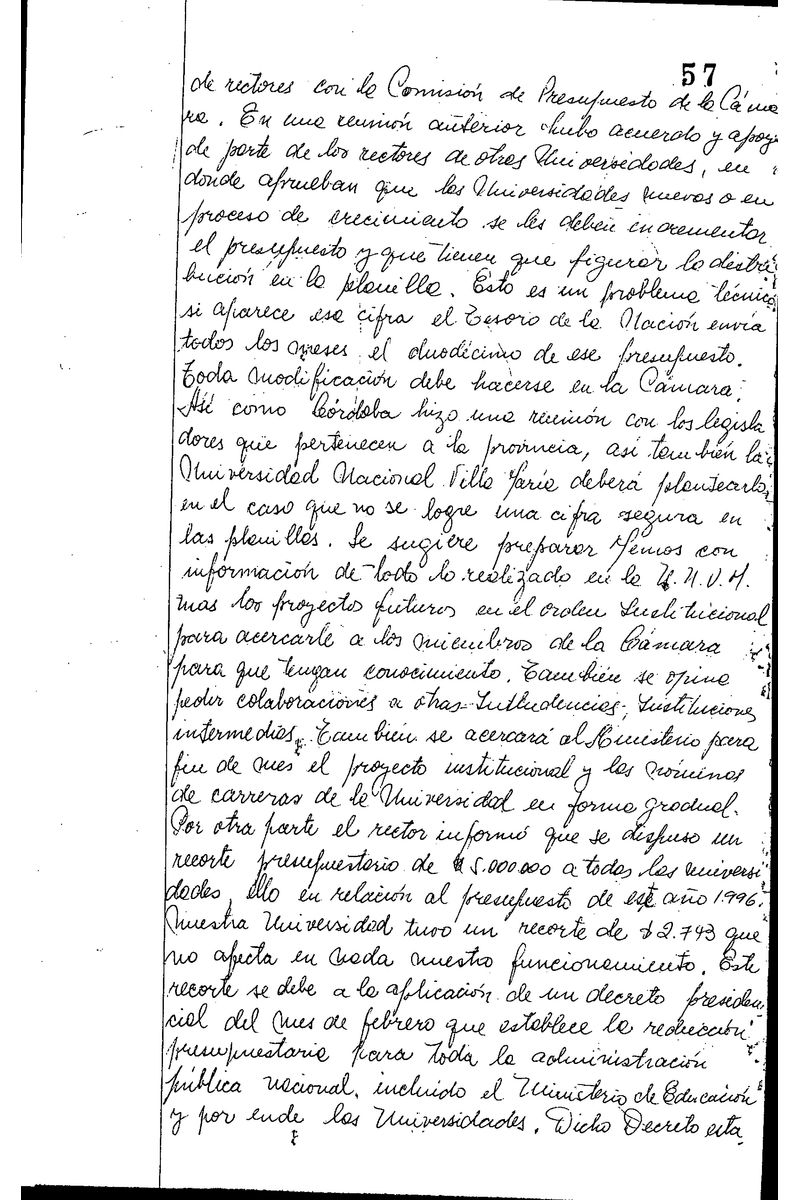 57
de rectores con la Comisión de Presupuesto de la Cáma
ra. En una reunión anterior hubo acuerdo y apoyo
de parte de los rectores de otras Universidades, en
donde aprueban que las Universidades nuevas o en
proceso de crecimiento se les deben incrementar
el presupuesto y que tienen que figurar la distri
bución en la planilla. Esto es un problema técnico
si aparece esa cifra el Tesoro de la Nación envía
todos los meses el duodécimo de ese presupuesto.
Toda modificación debe hacerse en la Cámara.
Así como Córdoba hizo una reunión con los legisla
dores que pertenecen a la provincia, así también la
Universidad Nacional Villa María deberá plantearlo,
en el caso que no se logre una cifra segura en
las planillas. Se sugiere preparar Memos con
información de todo lo realizado en la U.N.V.M.
mas los proyectos futuros en el orden Institucional
para acercarle a los miembros de la Cámara
para que tengan conocimiento. También se opina
pedir colaboraciones a otras Intendencias, Instituciones
intermedias. También se acercará al Ministerio para
fin de mes el proyecto institucional y las nóminas
de carreras de la Universidad en forma gradual.
Por otra parte el rector informó que se dispuso un
recorte presupuestario de $5.000.000 a todas las universi
dades, ello en relación al presupuesto de este año 1996.
Nuestra Universidad tuvo un recorte de $2.793 que
no afecta en nada nuestro funcionamiento. Este
recorte se debe a la aplicación de un decreto presiden
cial del mes de febrero que establece la reducción
presupuestaria para toda la administración
pública nacional, incluido el Ministerio de Educación
y por ende las Universidades. Dicho Decreto esta